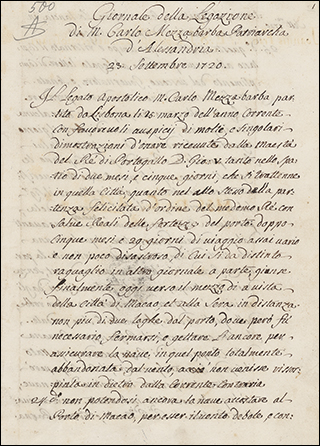 500
A
Giornale della Legazione
di M. Carlo Mezzabarba Patriarcha
d'Alessandria
23 Settembre 1720.
Il Legato Apostolico M. Carlo Mezzabarba par
tito da Lisbona li 25 marzo dell'anno corrente
con favorevoli auspicij di molte, e singolari
dimostrazioni d'onore ricevute dalla Maestà
del Rè di Portogallo D. Gio: V. tanto nello spa
tio di due mesi, e cinque giorni, che si trattenne
in quella Città, quanto nel atto stesso della par
tenza, felicitata d'ordine del medemo Rè con
salve Reali delle Fortezze del porto, doppo
cinque mesi e 29 giorni di viaggio assai vario
e non poco disastroso, di cui si dà distinto
raguaglio in altro giornale à parte, giunse
finalmente oggi verso il mezzo dì a vista
della Città di Macao, et alla sera in distanza
non più di due leghe dal porto, dove però fù
necessario fermarsi, e gettare l'ancore, per
assicurare la nave, in quel posto totalmente
abbandonata dal vento, non venisse risos
pinta in dietro dalla corrente contraria
24 d.º non potendosi ancora la nave accostare al
Porto di Macao, per esser il vento debole, e con: